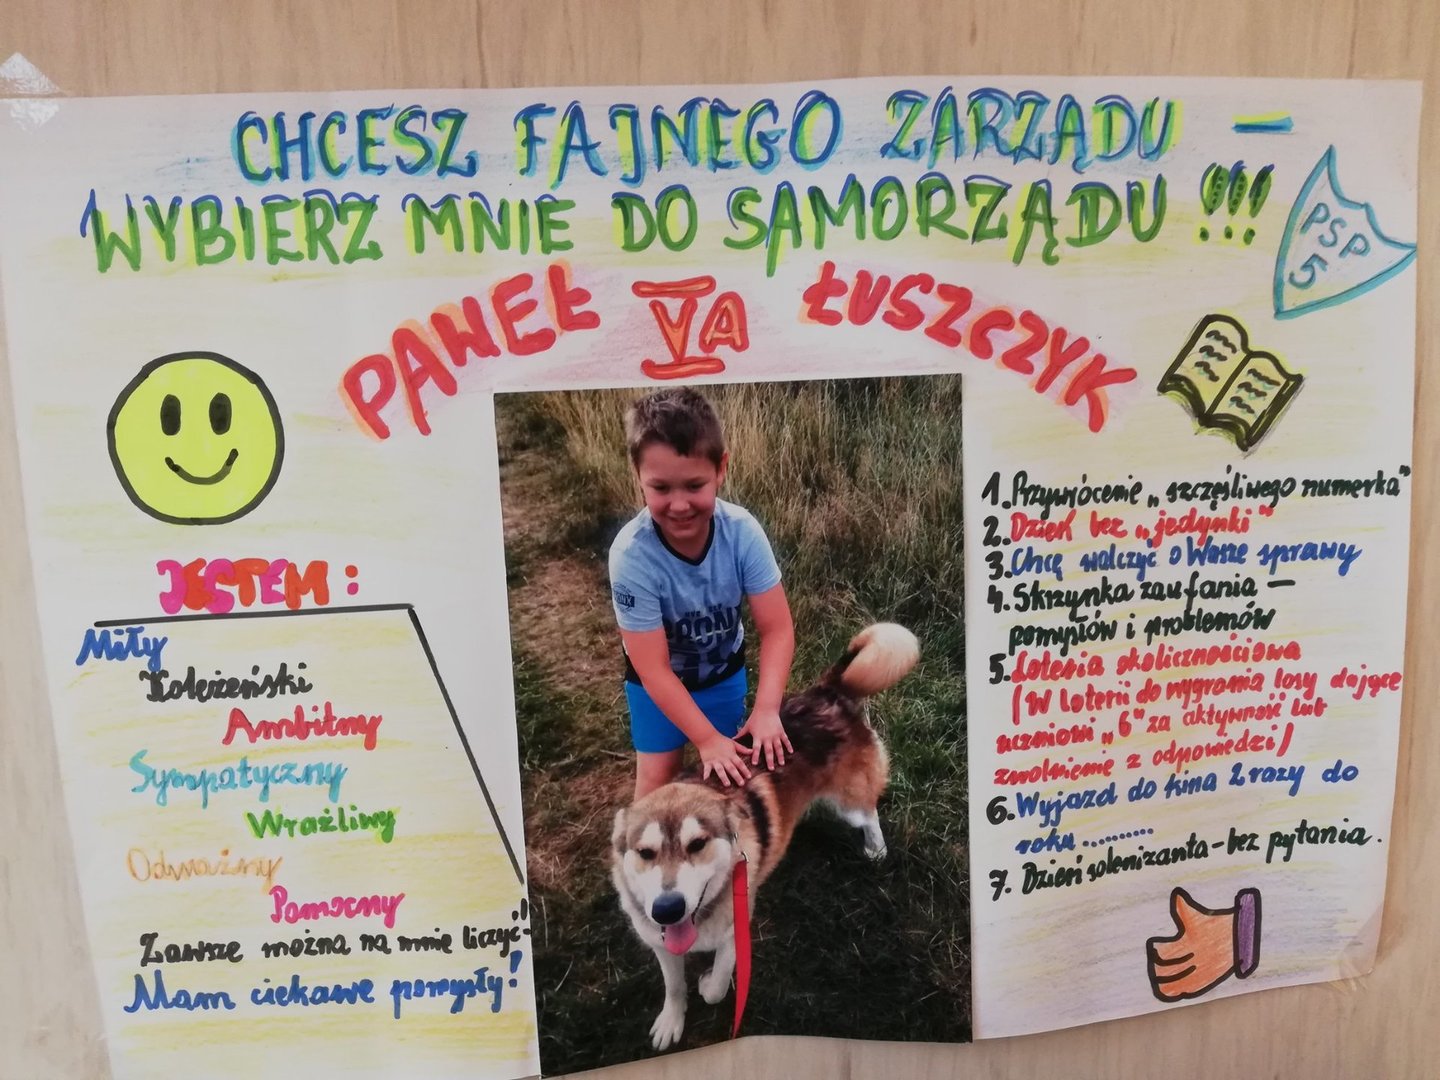 CHCESZ FAJNEGO ZARZĄDU –
WYBIERZ MNIE DO SAMORZĄDU !!!
PSP
5
PAWEŁ VA ŁUSZCZYK
JESTEM:
Miły
Koleżeński
Ambitny
Sympatyczny
Wrażliwy
Odważny
Pomocny
Zawsze można na mnie liczyć!
Mam ciekawe pomysły!
1. Przywrócenie „szczęśliwego numerka”
2. Dzień bez „jedynki”
3. Chcę walczyć o Wasze sprawy
4. Skrzynka zaufania –
pomysłów i problemów
5. Loteria okolicznościowa
(W loterii do wygrania losy dające
uczniowi „6” za aktywność lub
zwolnienie z odpowiedzi)
6. Wyjazd do kina 2 razy do
roku..........
7. Dzień solenizanta – bez pytania.